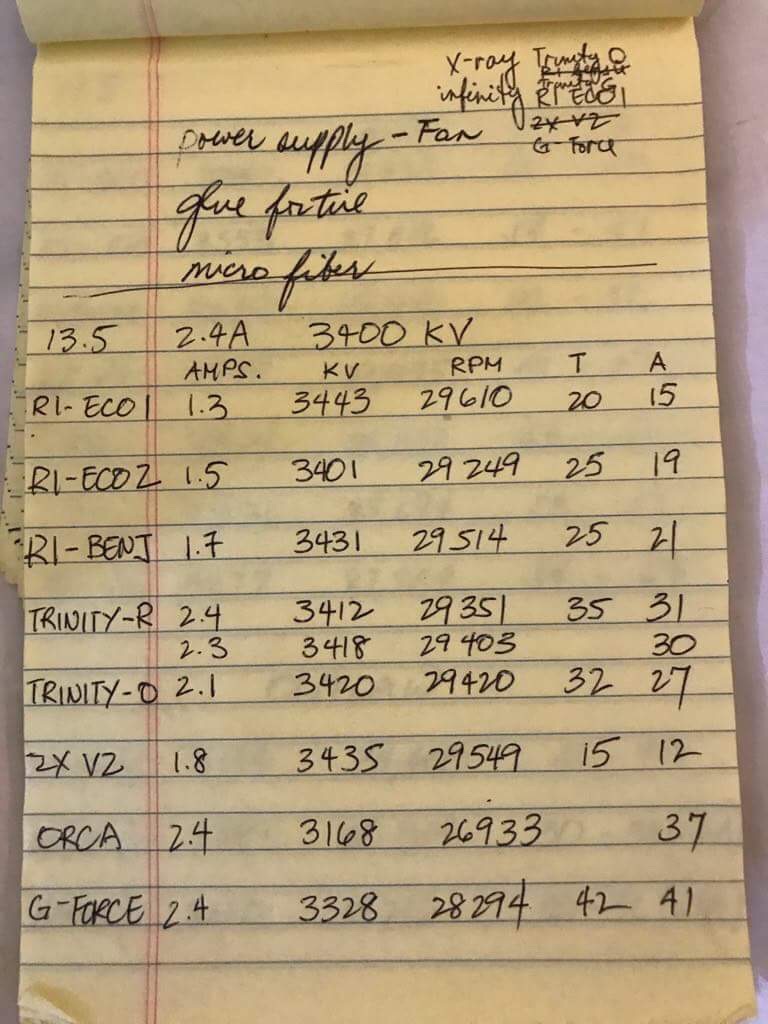 X-ray Trinity O
infinity RI ECO1
2X V2
G-Force
power supply - Fan
glue fixtive
micro fiber
13.5 2.4A 3400 KV
AMPS. KV RPM T A
R1-ECO1 1.3 3443 29610 20 15
R1-ECO2 1.5 3401 29249 25 19
R1-BENJ 1.7 3431 29514 25 21
TRINITY-R 2.4 3412 29351 35 31
2.3 3418 29403 30
TRINITY-O 2.1 3420 29420 32 27
2X V2 1.8 3435 29549 15 12
ORCA 2.4 3168 26933 37
G-FORCE 2.4 3328 28294 42 41